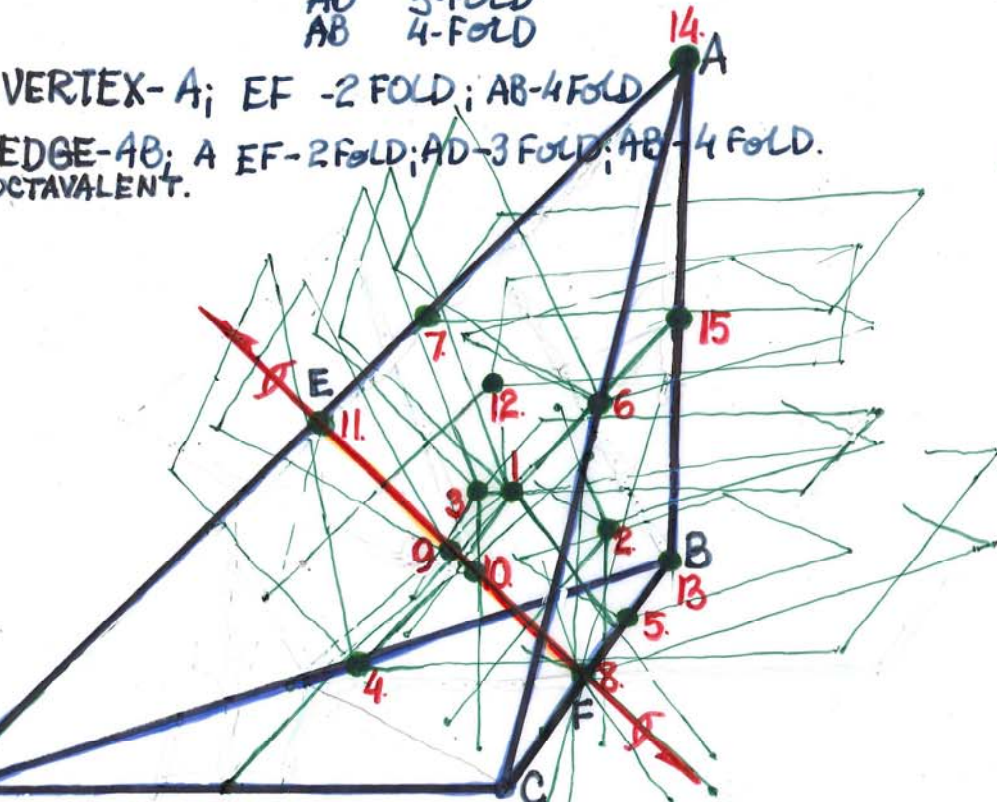 AB 4-FOLD
VERTEX-A; EF -2 FOLD; AB-4 FOLD
EDGE-AB; A EF-2 FOLD; AD-3 FOLD; AB-4 FOLD.
OCTAVALENT.
14.
A
7.
15
E
11.
12.
6
3
1
2.
9
10.
B
13
5.
4.
8.
F
C